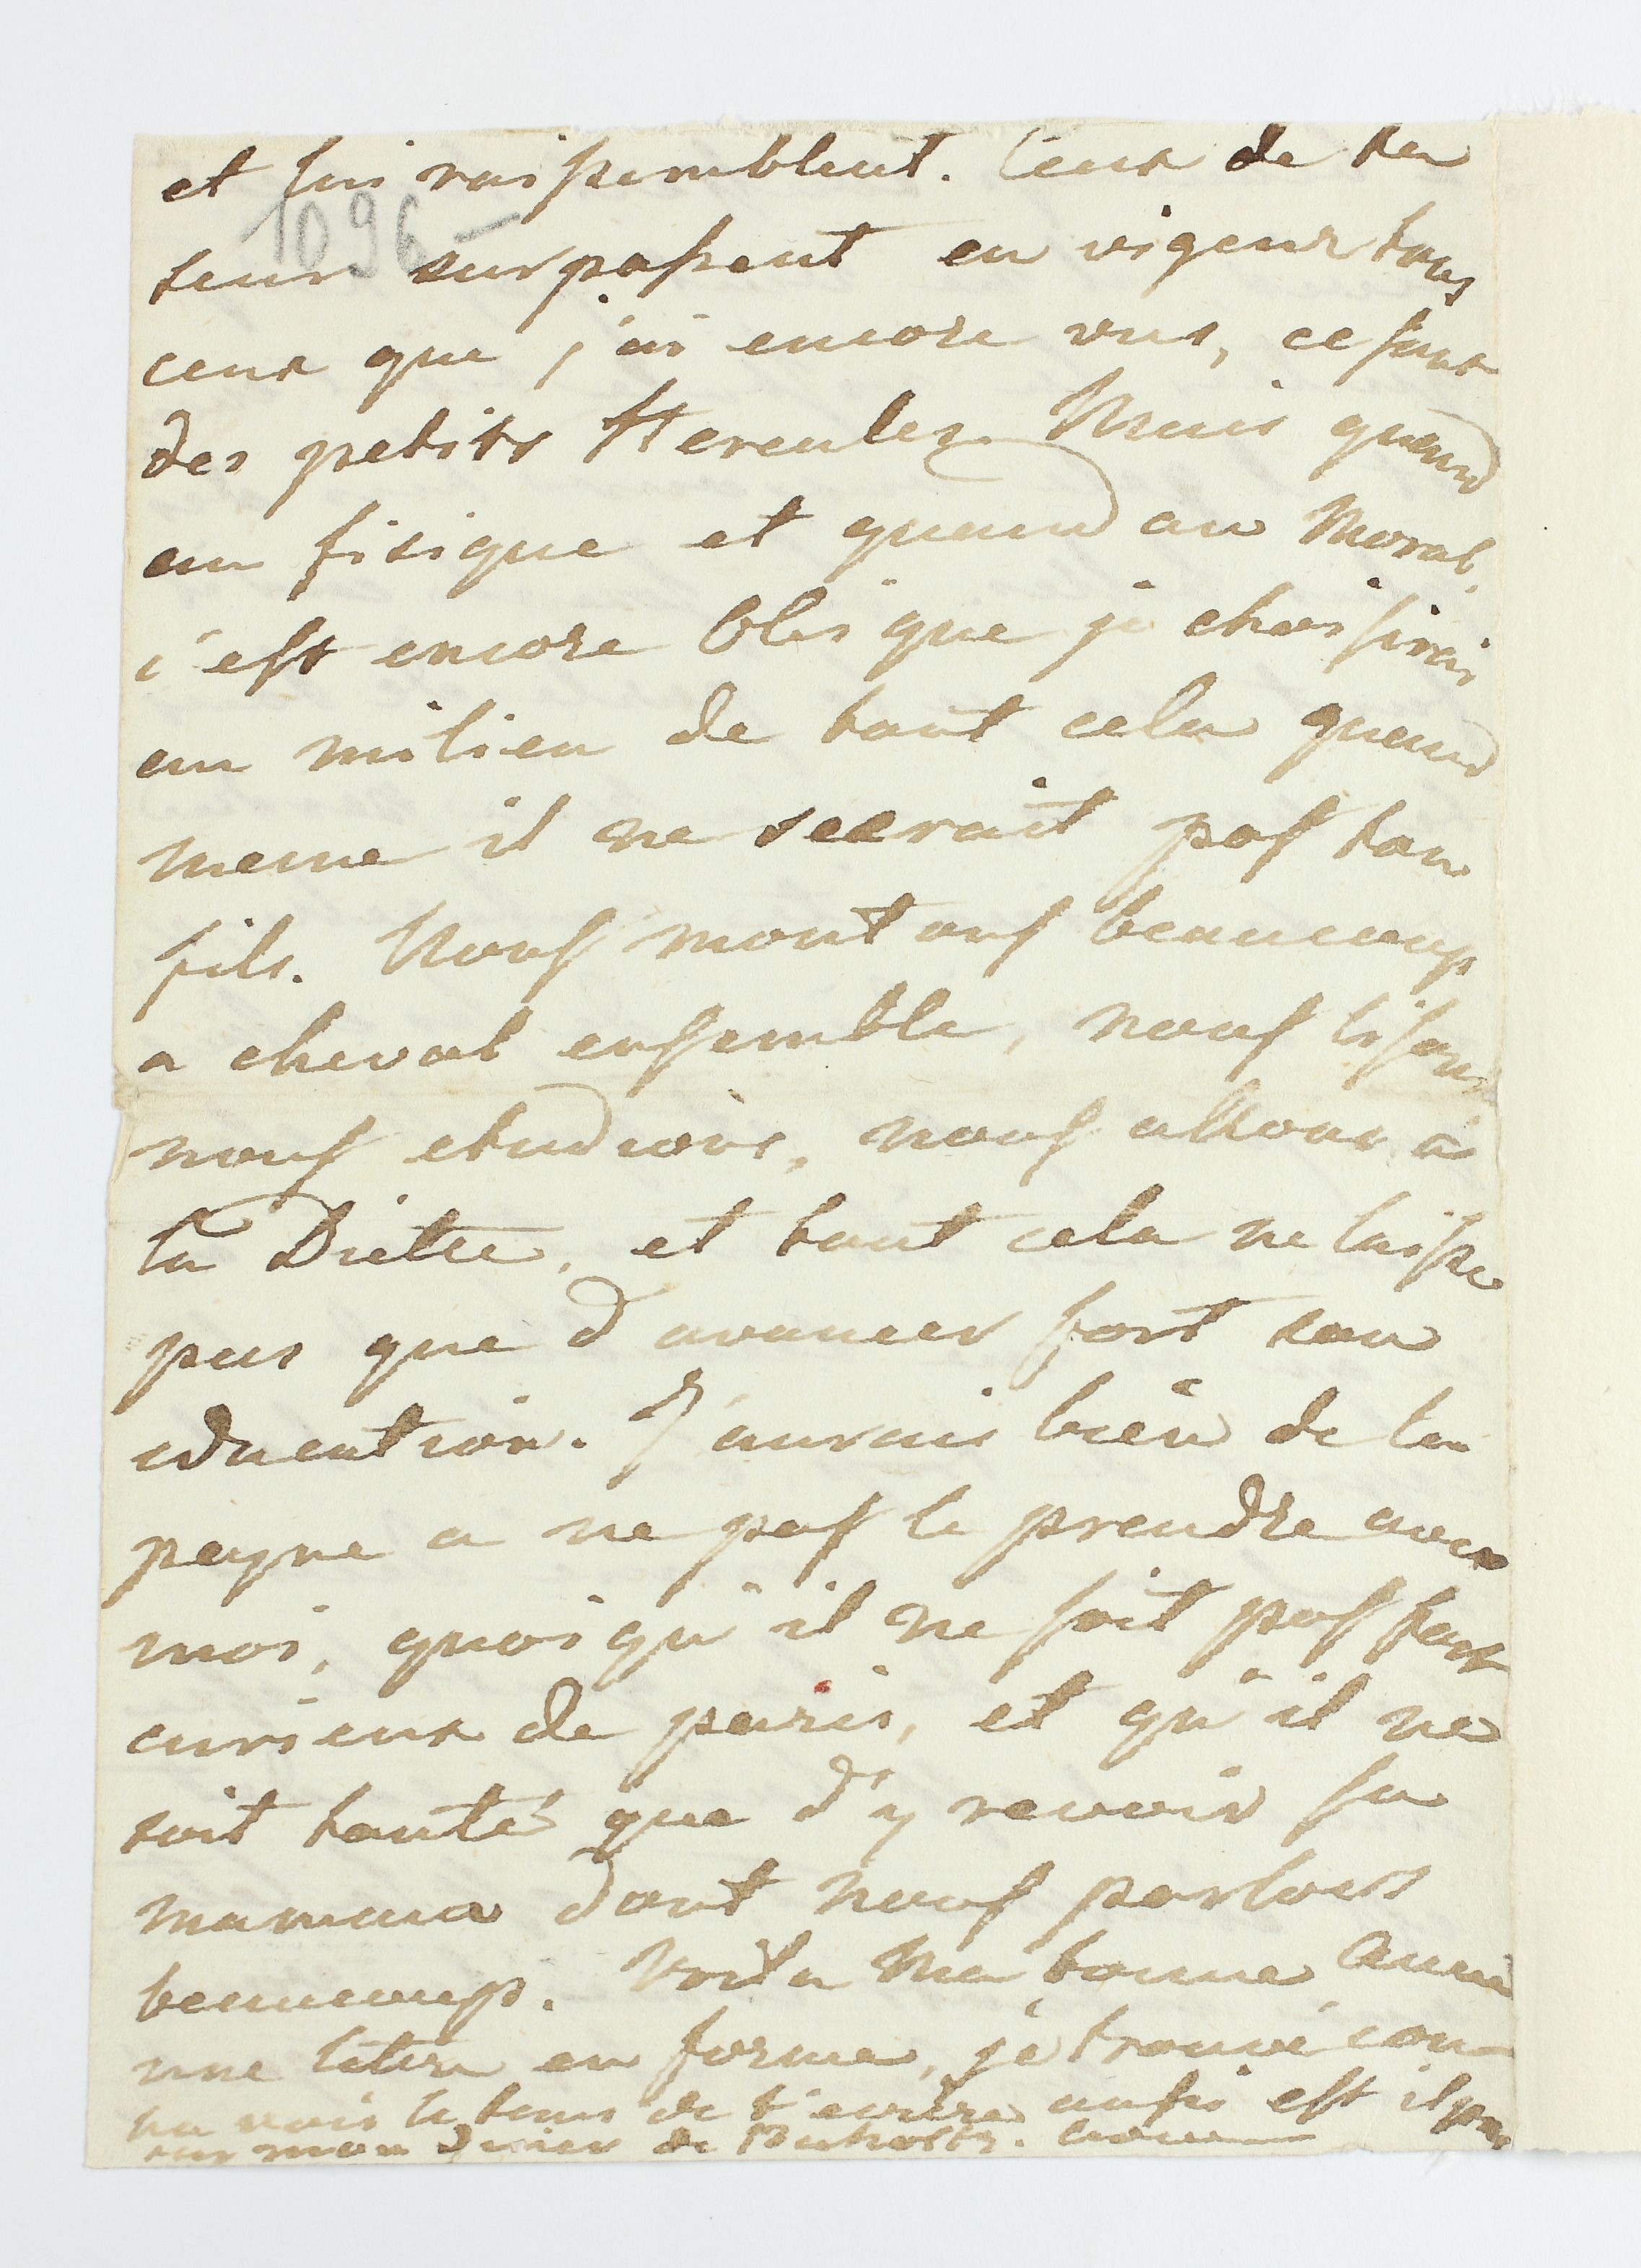 et lui raissemblent. Ceux de ta
1096
seur surpassent en vigeur tous
ceux que j'ai encore vus, ce sont
des petits Hercules. Mais quand
au fisique et quand au Moral,
c'est encore Oles que je choisirais
au milieu de tout cela quand
meme il ne seerait pas ton
fils. Nous montons beaucoup
a cheval ensemble, nous lisons
nous etudions, nous allons à
la Diette, et tout cela ne laisse
pas que d'avancer fort son
education. J'aurais bien de la
peyne a ne pas le prendre avec
moi, quoiqu'il ne soit pas fort
curieux de paris, et qu'il ne
soit tanté que d'y revoir sa
maman dont nous parlons
beaucoup. Voila Ma bonne Amie
une letre en forme, je trouve con
tu vois le tems de t'ecrire aussi est il pas
sur mon